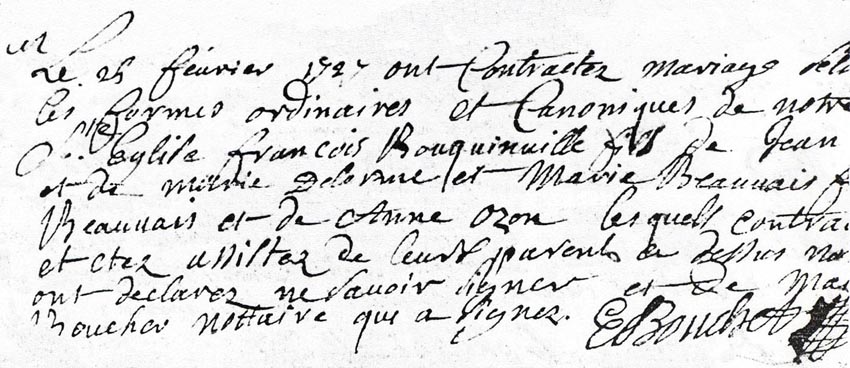 Le 25 février 1727 ont Contractez mariage
les formes ordinaires et Canoniques de notre
Ste Eglise françois Bouquinville fils de Jean
et de marie Delorme et Marie Beauvais
Beauvais et de Anne Ozon lesquels contra
et etez assistez de leurs parents ce dessus
ont declarez ne savoir signer et de Ma
Boucher nottaire qui a signez. EBoucher